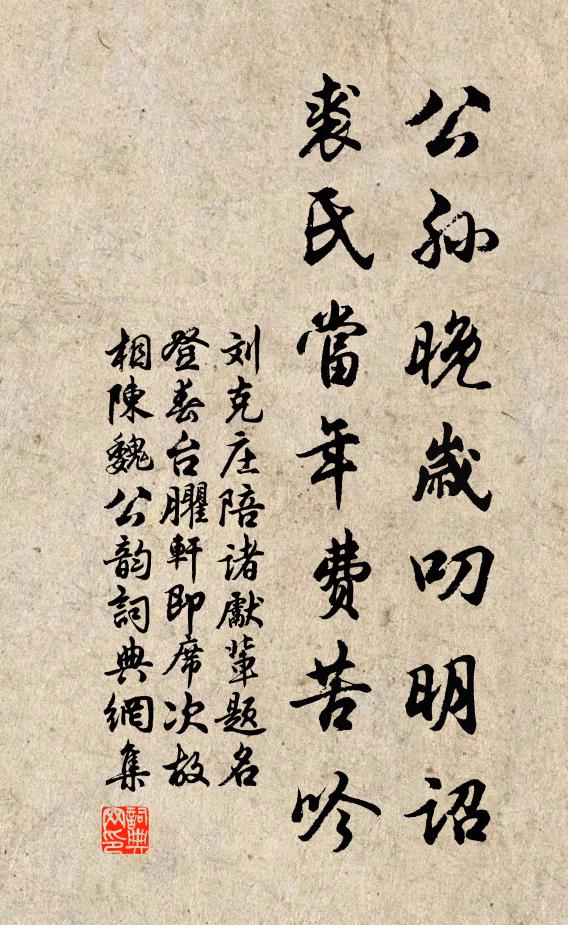 公孙晚歲叨明詔
裘氏當年費苦吟
刘克庄陪诸獻輩题名
登春台臞軒即席次故
相陳魏公韵詞典網集
詞典网印